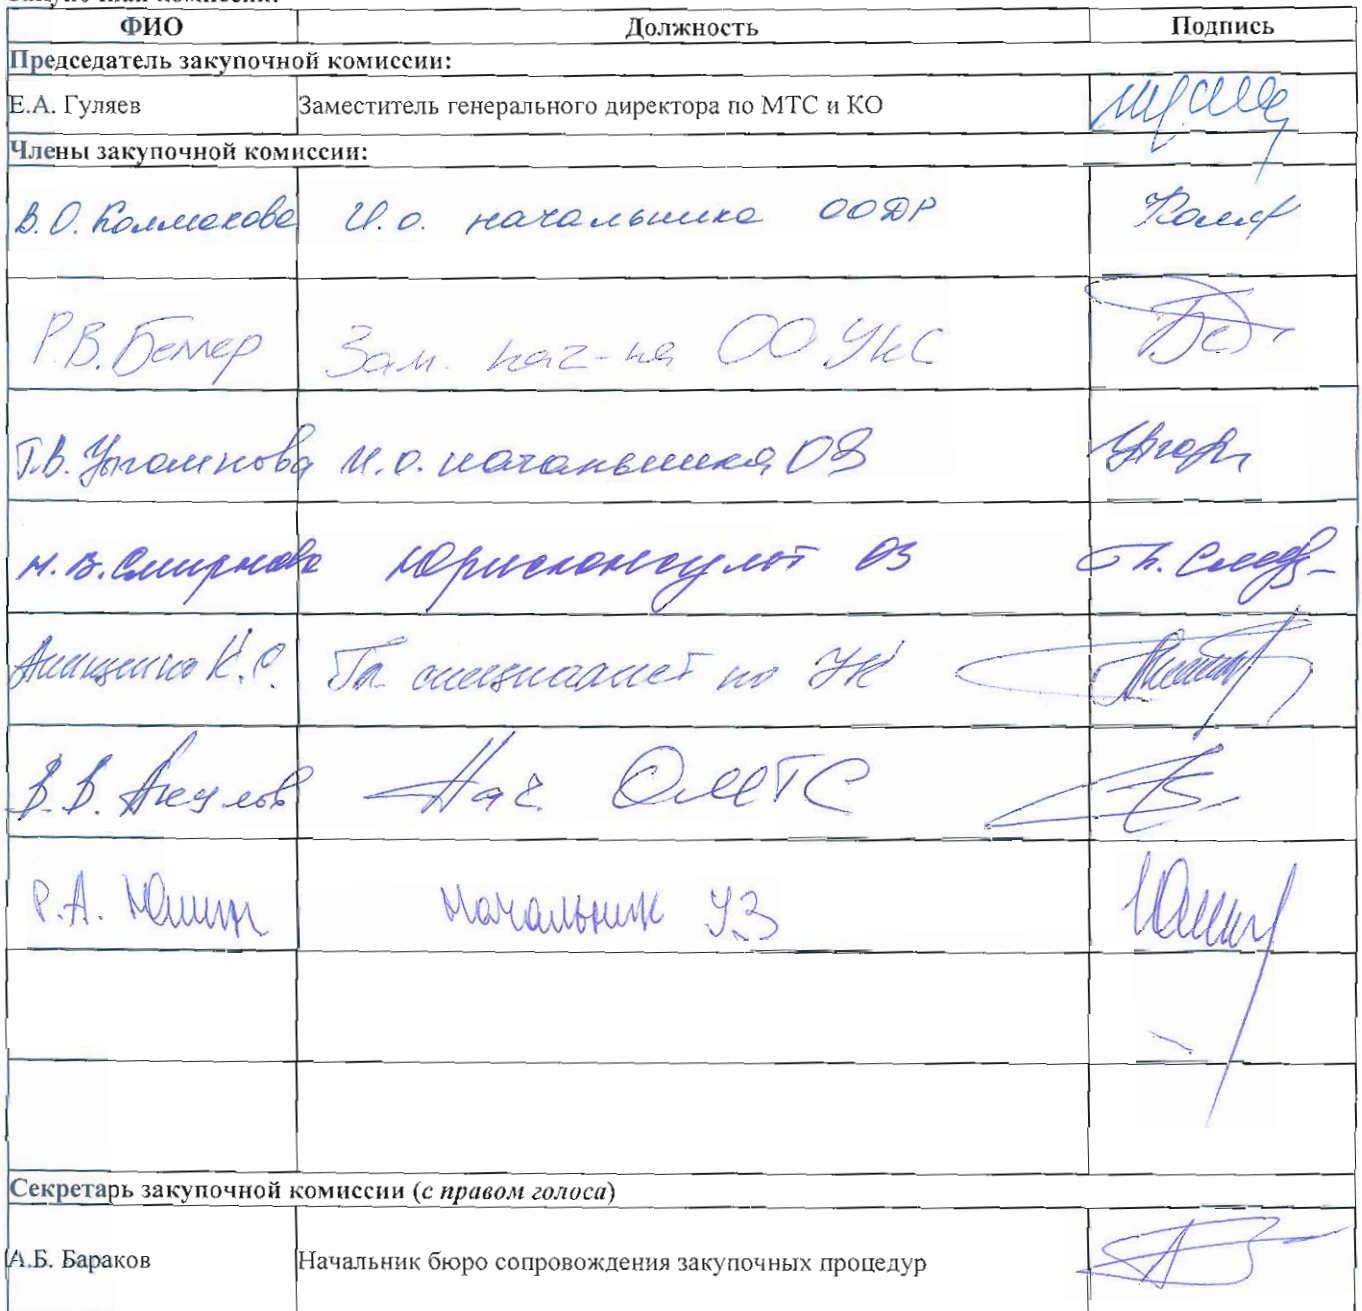 ФИО Должность Подпись
Председатель закупочной комиссии:
Е.А. Гуляев Заместитель генерального директора по МТС и КО
Члены закупочной комиссии:
В.О. Колмакова И.о. начальника ООДР
Р.В. Беллер Зам. нач-ка ОО УКС
Т.В. И.о. начальника ОЗ
Н.В. Смирнова Юрисконсульт ОЗ
Анищенко К.С. Гл специалист по УК
В.В. Акулов Нач. ОМТС
Р.А. Юшин Начальник УЗ
Секретарь закупочной комиссии (с правом голоса)
А.Б. Бараков Начальник бюро сопровождения закупочных процедур